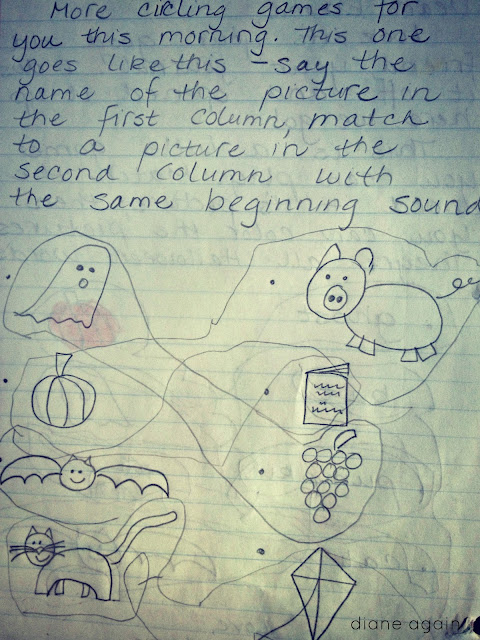 More circling games for
you this morning. This one
goes like this - say the
name of the picture in
the first column, match
to a picture in the
second column with
the same beginning sound
diane again